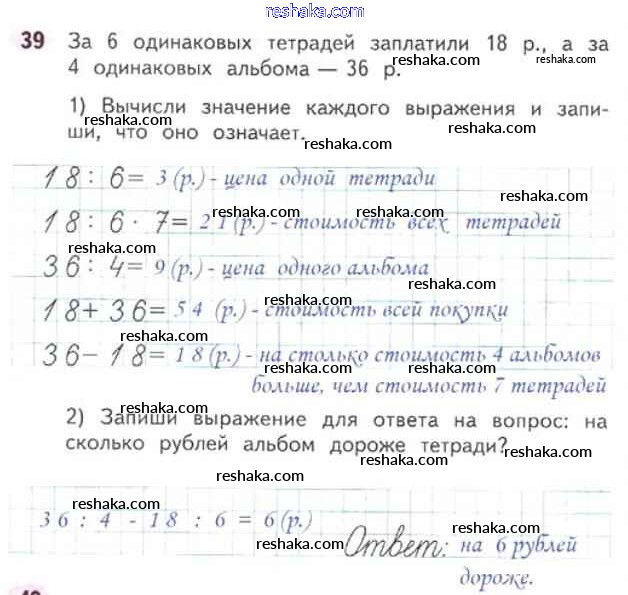 reshaka.com
39 За 6 одинаковых тетрадей заплатили 18 р., а за
4 одинаковых альбома — 36 р.
reshaka.com
reshaka.com
reshaka.com
1) Вычисли значение каждого выражения и запи-
ши, что оно означает.
reshaka.com
reshaka.com
18 : 6 = 3 (р.) - цена одной тетради
reshaka.com
18 : 6 · 7 = 21 (р.) - стоимость всех тетрадей
reshaka.com
reshaka.com
36 : 4 = 9 (р.) - цена одного альбома
reshaka.com
reshaka.com
18 + 36 = 54 (р.) - стоимость всей покупки
reshaka.com
reshaka.com
36 - 18 = 18 (р.) - на столько стоимость 4 альбомов
reshaka.com
reshaka.com
больше, чем стоимость 7 тетрадей
reshaka.com
2) Запиши выражение для ответа на вопрос: на
сколько рублей альбом дороже тетради?
reshaka.com
reshaka.com
reshaka.com
reshaka.com
36 : 4 - 18 : 6 = 6 (р.)
reshaka.com
Ответ: на 6 рублей
reshaka.com
дороже.
reshaka.com